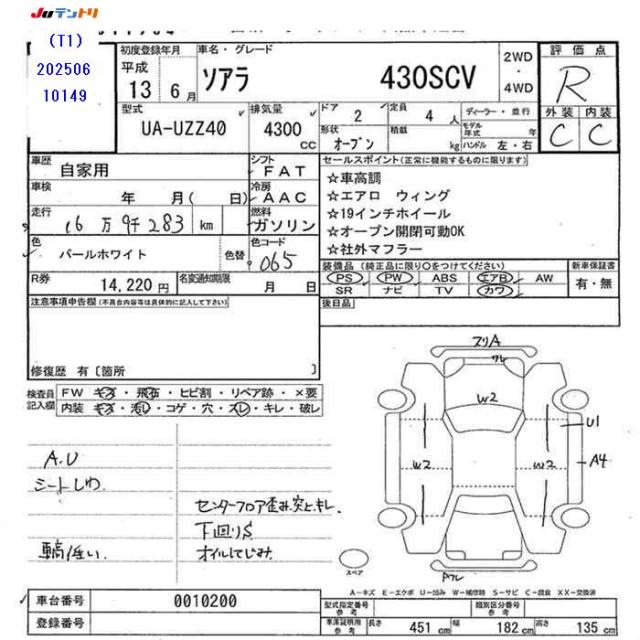 JUテントリ
(T1)
202506
10149
初度登録年月
平成
13 6月
車名・グレード
ソアラ 430SCV
2WD
・
4WD
評価点
R
外装 内装
C C
型式
UA-UZZ40
排気量
4300 cc
ドア 2
形状 オープン
定員 4 人
積載 kg
ディーラー・並行
モデル年式 年
ハンドル 左・右
車歴 自家用
シフト FAT
セールスポイント(正常に機能するものに限ります)
☆車高調
☆エアロ ウィング
☆19インチホイール
☆オープン開閉可動OK
☆社外マフラー
車検 年 月( 日)
冷房 AAC
走行 16万9千283 km
燃料 ガソリン
色 パールホワイト
色替
色コード 065
装備品(純正品に限り○をつけてください)
PS PW ABS エアB AW
SR ナビ TV カワ
新車保証書
有・無
R券 14,220円
名変通知期限 月 日
後日品
注意事項申告欄(不具合内容等は具体的に記入して下さい)
修復歴 有〔箇所 〕
検査員記入欄
FW キズ・飛石・ヒビ割・リペア跡・×要
内装 キズ・汚レ・コゲ・穴・スレ・キレ・破レ
A.U
シートしわ
車高低い
センターフロア歪み、突と、キレ、
下回りS
オイルにじみ
スリA
ワレ
W2
U1
W2
W2
A4
スペア
Aワレ
A-キズ E-エクボ U-凹み W-補修跡 S-サビ C-腐食 XX-交換済
車台番号 0010200
登録番号
型式指定番号 参考
類別区分番号 参考
車庫証明用 参考
長さ 451 cm
幅 182 cm
高さ 135 cm